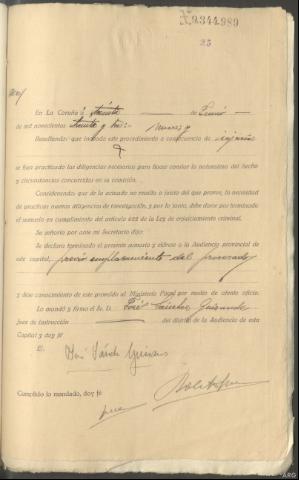 N.9.344.989
25
En La Coruña á treinta de Junio
de mil novecientos treinta y tres.
Resultando: que incoado este procedimiento a consecuencia de injurias
se han practicado las diligencias necesarias para hacer constar la naturaleza del hecho
y circunstancias concurridas en su comisión.
Considerando: que de lo actuado no resulta a juicio del que provee, la necesidad
de practicar nuevas diligencias de investigación, y por lo tanto, debe darse por terminado
el sumario en cumplimiento del artículo 622 de la Ley de enjuiciamiento criminal.
Su señoría por ante mi Secretario dijo:
Se declara terminado el presente sumario y elévese a la Audiencia provincial de
esta capital, previo emplazamiento del procesado
y dése conocimiento de este proveído al Ministerio Fiscal por medio de atento oficio.
Lo mandó y firma el Sr. D. José Sánchez Guisande
Juez de Instrucción del distrito de la Audiencia de esta
Capital y doy fé
E.
José Sánchez Guisande
Cumplido lo mandado, doy fé
ARG